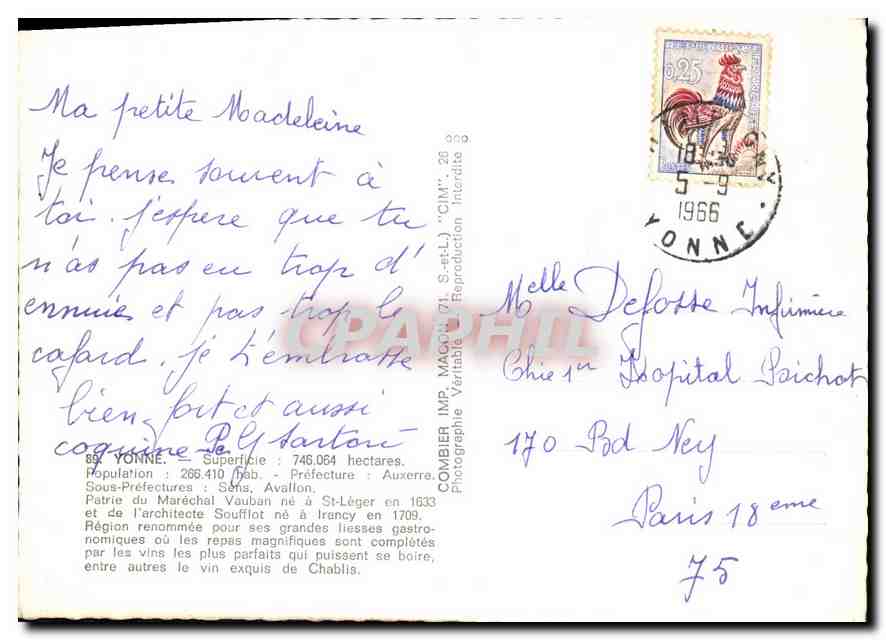 Ma petite Madeleine
Je pense souvent à
toi. j'espere que tu
n'as pas eu trop d'
ennuie et pas trop le
cafard. je t'embrasse
bien fort et aussi
coquine
89. YONNE. - Superficie : 746.064 hectares.
Population : 266.410 hab. - Préfecture : Auxerre.
Sous-Préfectures : Sens, Avallon.
Patrie du Maréchal Vauban né à St-Léger en 1633
et de l'architecte Soufflot né à Irancy en 1709.
Région renommée pour ses grandes liesses gastro-
nomiques où les repas magnifiques sont complétés
par les vins les plus parfaits qui puissent se boire,
entre autres le vin exquis de Chablis.
COMBIER IMP. MACON (71. S.-et-L.) "CIM". 26
Photographie Véritable - Reproduction Interdite
CPAPHIL
0,25
5 - 9
1966
YONNE
Melle Defosse Infirmière
Chie 1er Hopital Bichat
170 Bd Ney
Paris 18eme
75